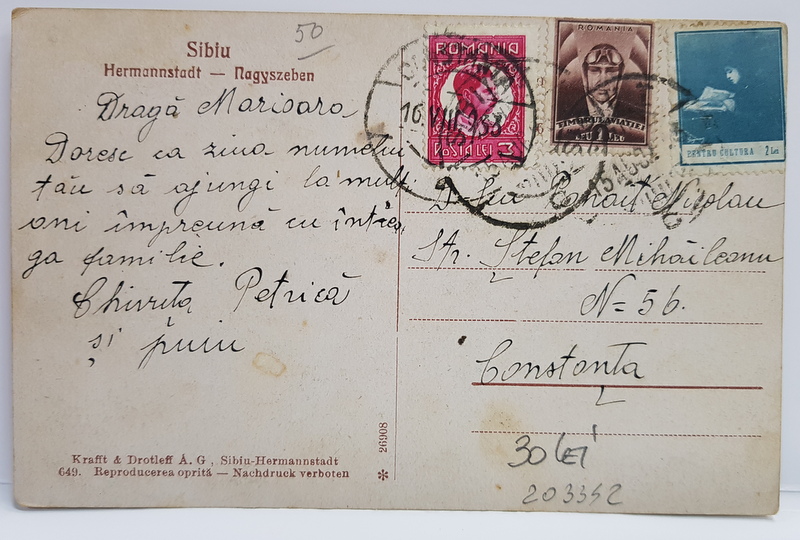 50
Sibiu
Hermannstadt — Nagyszeben
Dragă Marioara
Doresc ca ziua numelui
tău să ajungi la mulți
ani împreună cu întrea
ga familie.
Chivuța Petrică
și puiu
Krafft & Drotleff A. G , Sibiu-Hermannstadt
649. Reproducerea oprită — Nachdruck verboten
26908
ROMANIA
POSTA LEI 3
16 VIII 933
ROMANIA
TIMBRUL AVIAȚIEI
PENTRU CULTURA 2 LEI
D-lui Panait Nicolau
Str. Ștefan Mihăileanu
N= 56.
Constanța
30 LEI
203352